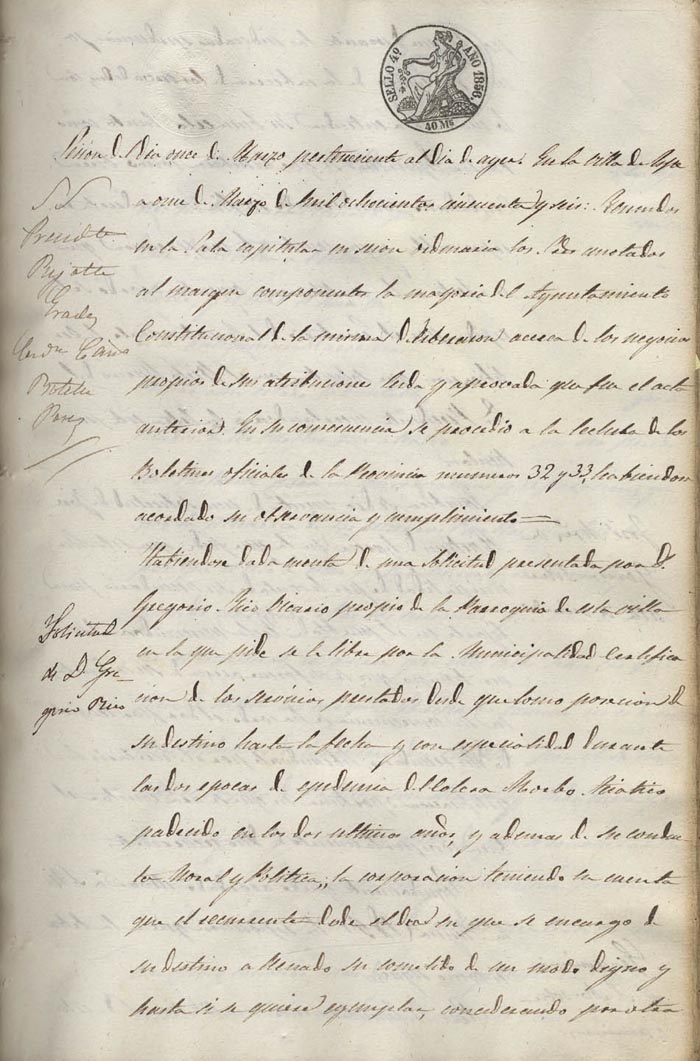 SELLO 4º AÑO 1856.
40 Ms
Sesion de dia once de Marzo perteneciente al dia de ayer. En la villa de
a once de Marzo de mil ochocientos cincuenta y seis: Reunidos
en la Sala capitular en sesion ordinaria los Sres anotados
al margen componentes la mayoria del Ayuntamiento
Constitucional de la misma deliberaron acerca de los negocios
propios de sus atribuciones leida y aprovada que fue el acta
anterior. En su consecuencia se procedio a la lectura de los
Boletines oficiales de la Provincia numeros 32 y 33, habiendose
acordado su observancia y cumplimiento =
Habiendose dada cuenta de una solicitud presentada por D.
Gregorio Rico Vicario propio de la Parroquia de esta villa
en la que pide se le libre por la Municipalidad Certifica
cion de los servicios prestados desde que tomo posecion de
su destino hasta la fecha y con especialidad durante
las dos epocas de epidemia del Colera Morbo Asiatico
padecido en los dos ultimos años, y ademas de su conduc
ta Moral y Politica, la corporacion teniendo en cuenta
que el recurrente desde el dia en que se encargo de
su destino a llenado su cometido de un modo digno y
hasta si se quiere ejemplar, considerando por otra
SS
Presidte
Solicitud
de D. Gre-
gorio Rico